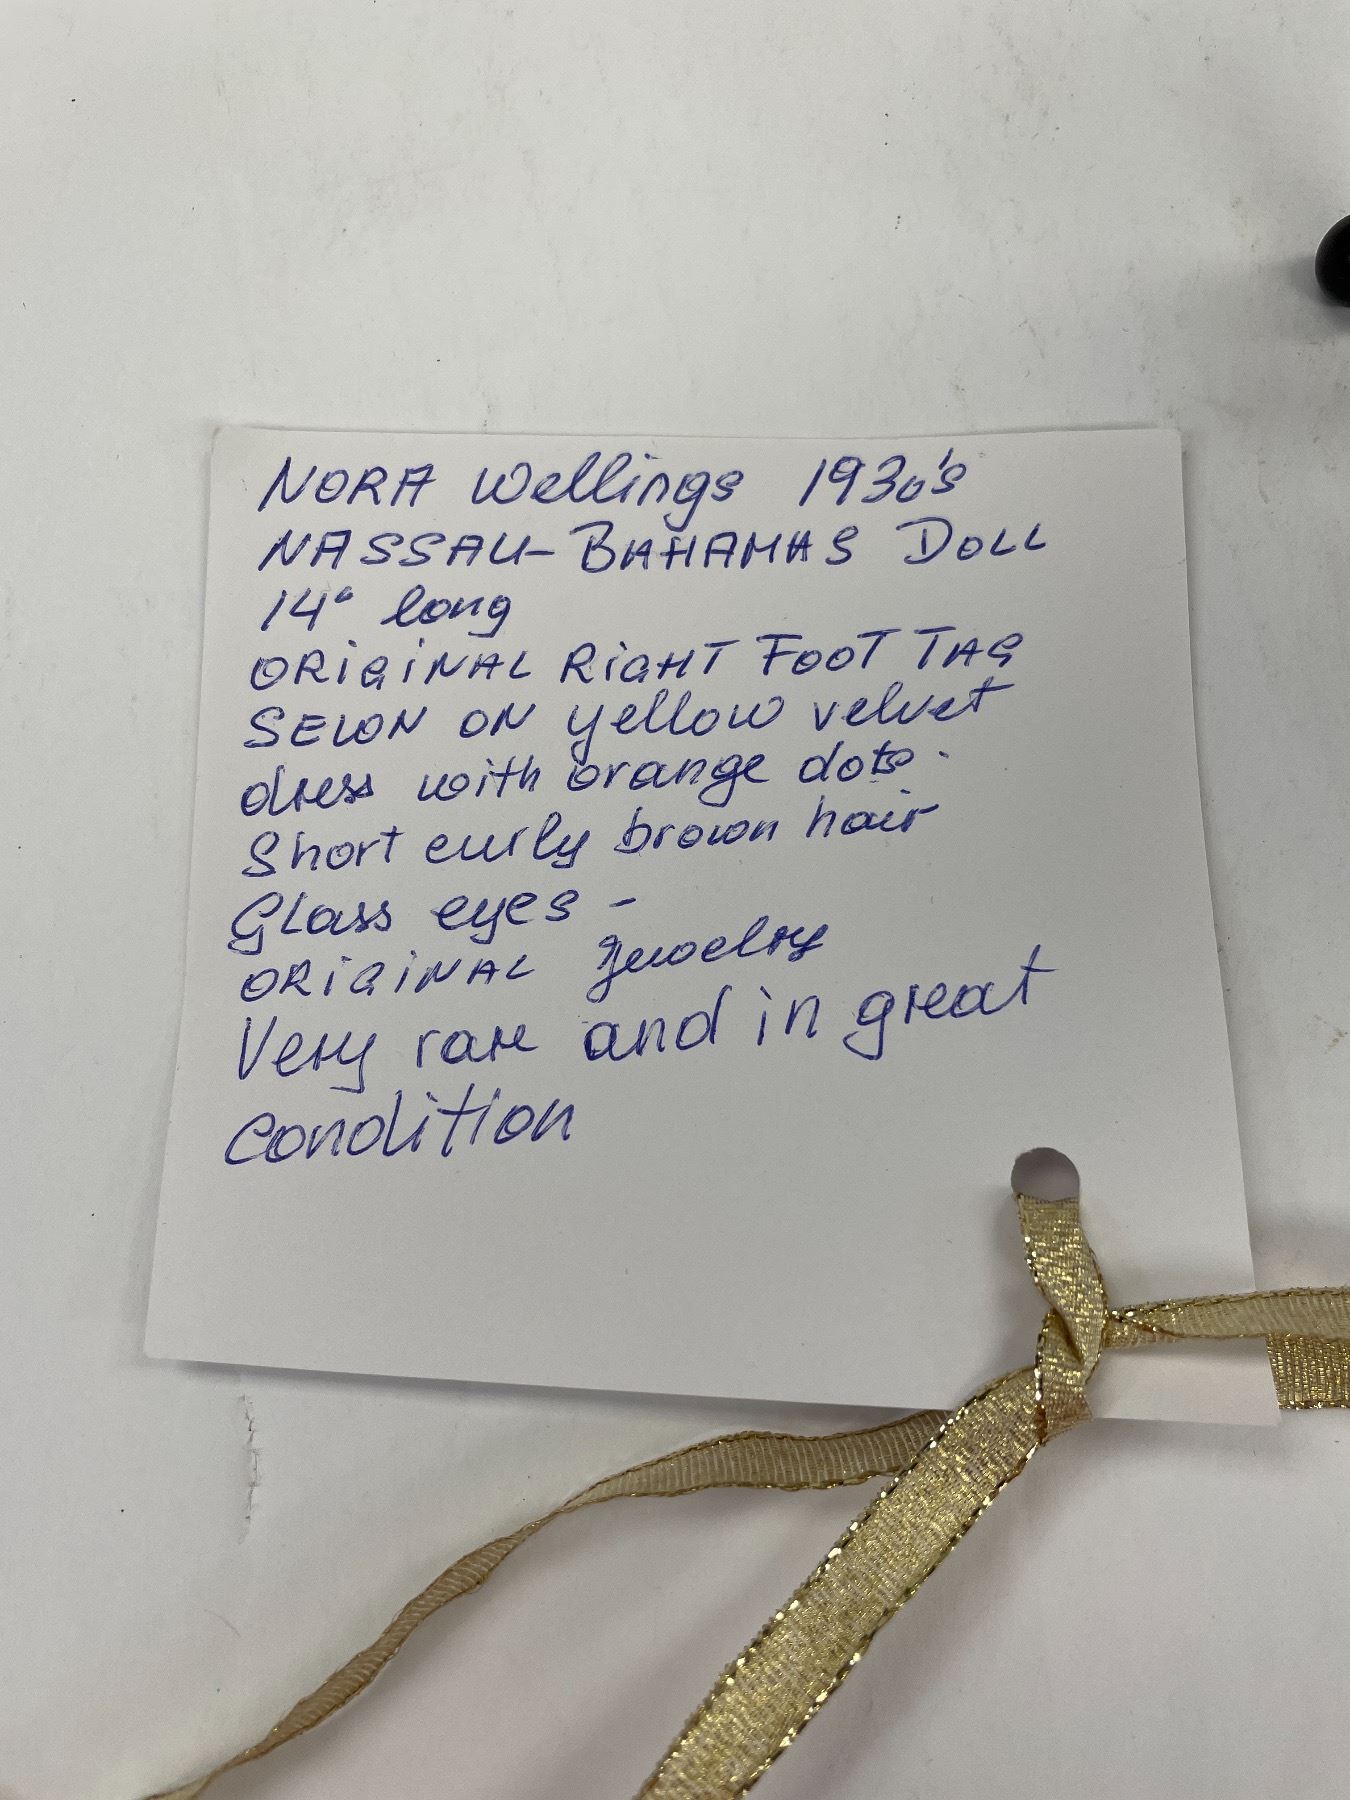 NORA Wellings 1930's
NASSAU-BAHAMAS DOLL
14" long
ORIGINAL RIGHT FOOT TAG
SEWN ON yellow velvet
dress with orange dots.
Short curly brown hair
Glass eyes -
ORIGINAL Jewelry
Very rare and in great
condition